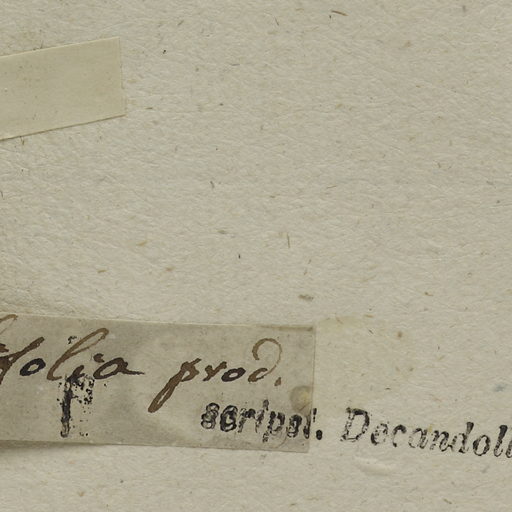 folia prod.
scripsl. Decandoll